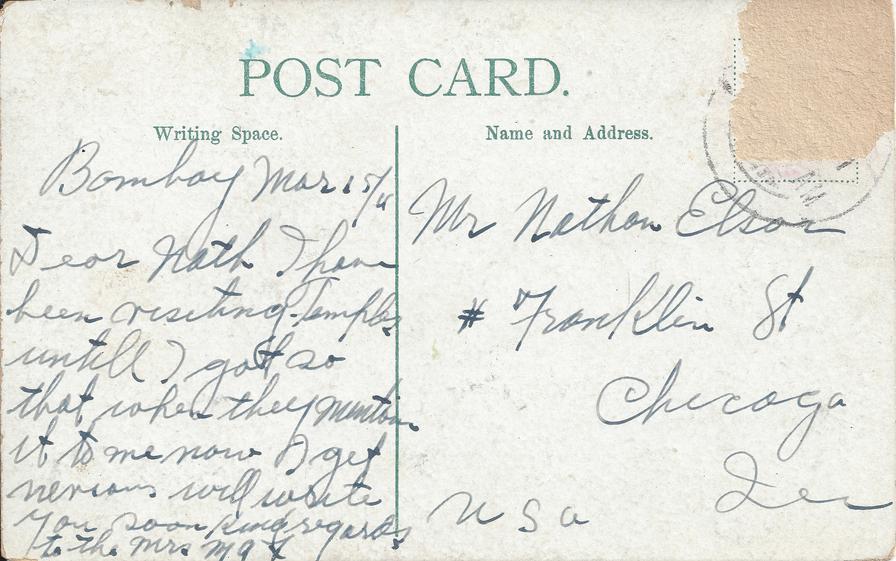 POST CARD.
Writing Space.
Name and Address.
Bombay Mar 15/
Dear Nath I have
been visiting Temples
untill I got so
that when they mention
it to me now I get
nervous will write
you soon kind regards
to the Mrs
Mr Nathan Elson
# Franklin St
Chicago
Ill
U S a